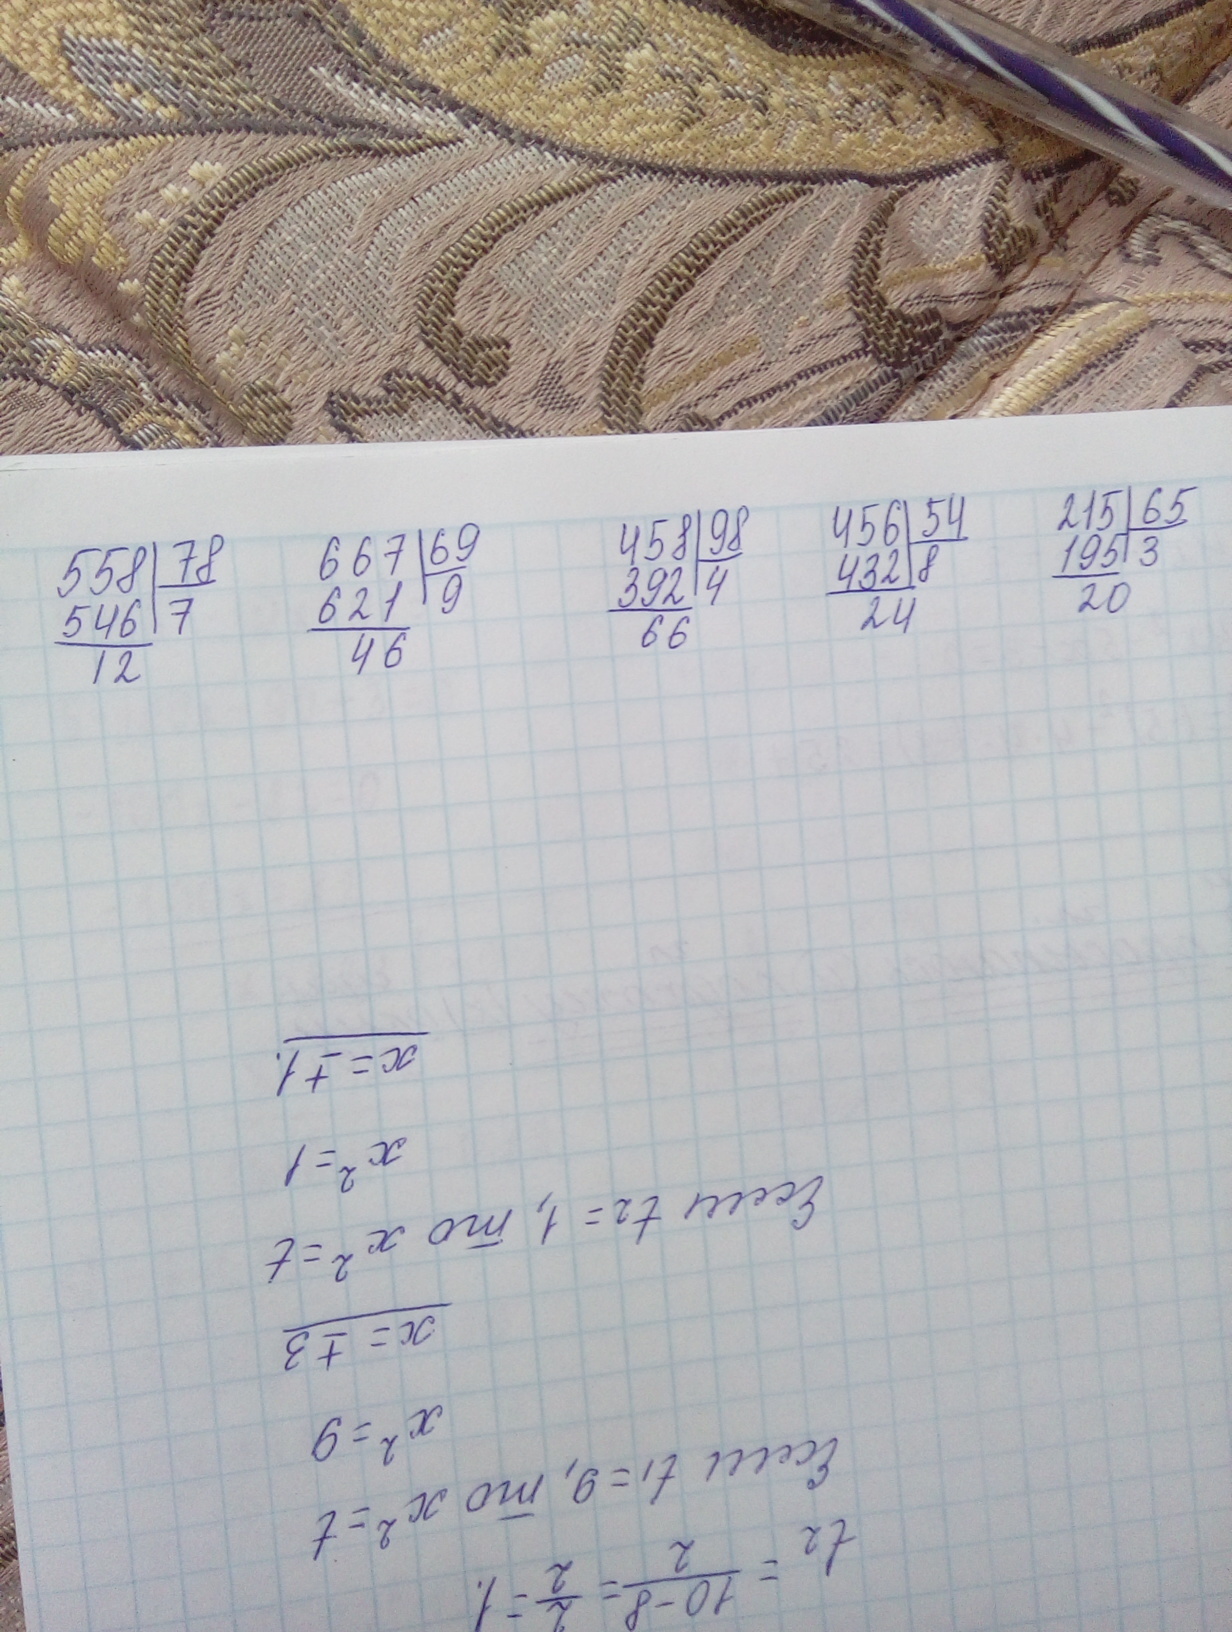 558 | 78
546 | 7
12
667 | 69
621 | 9
46
458 | 98
392 | 4
66
456 | 54
432 | 8
24
215 | 65
195 | 3
20
t₂ = (10-8)/2 = 2/2 = 1.
Если t₁ = 9, то x² = t
x² = 9
x = ± 3
Если t₂ = 1, то x² = t
x² = 1
x = ± 1.